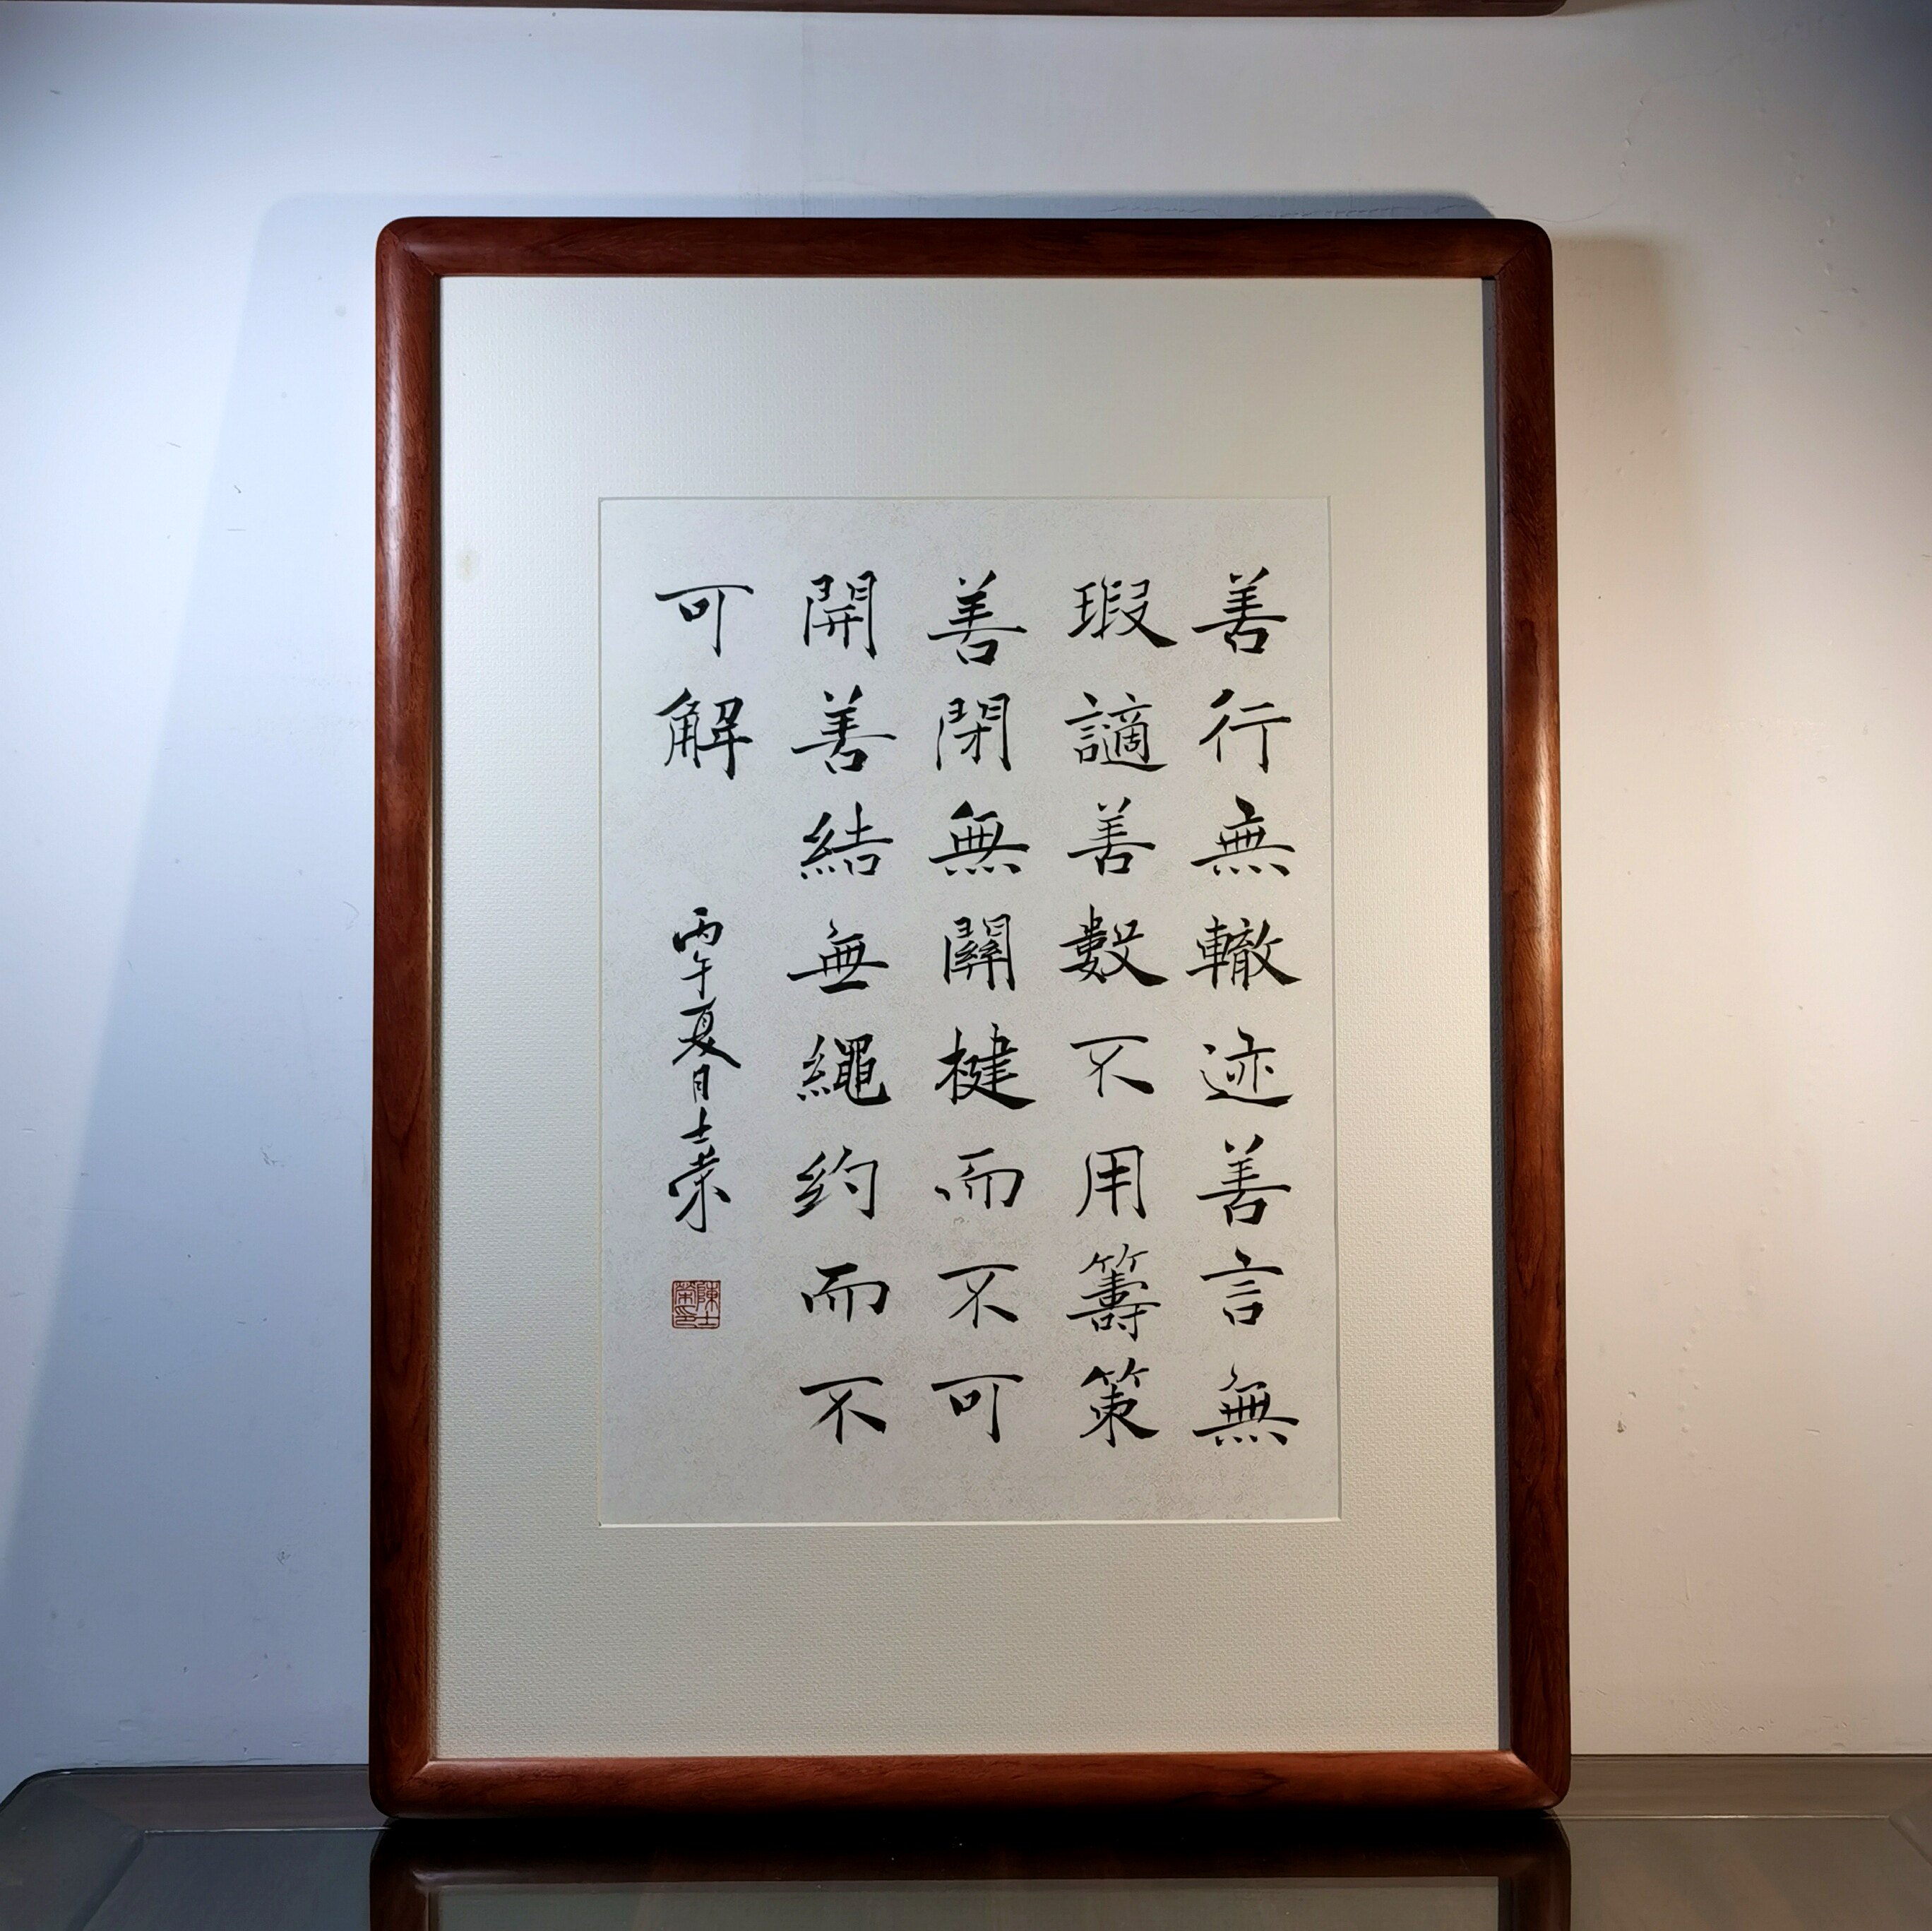 善行無轍迹善言無
瑕謫善數不用籌策
善閉無關楗而不可
開善結無繩约而不
可解
丙午夏月士荣
陳士榮印